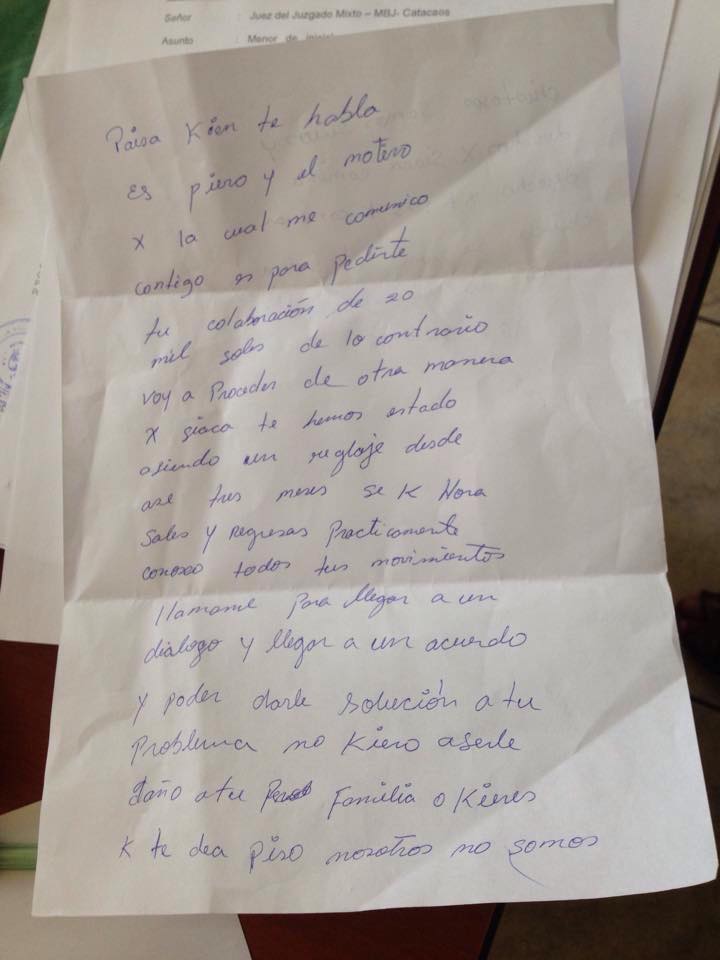 Señor : Juez del Juzgado Mixto – MBJ- Catacaos
Asunto : Menor de
Paisa Kien te habla
es piero y el motivo
x la cual me comunico
contigo es para pedirte
tu colaboración de 20
mil soles de lo contrario
voy a Proceder de otra manera
x siaca te hemos estado
asiendo un reglaje desde
ase tres meses se K Hora
sales y regresas Practicamente
conosco todos tus movimientos
llamame para llegar a un
dialogo y llegar a un acuerdo
y poder darle solución a tu
Problema no Kiero aserle
daño a tu Familia o Kieres
K te dea piso nosotros no somos